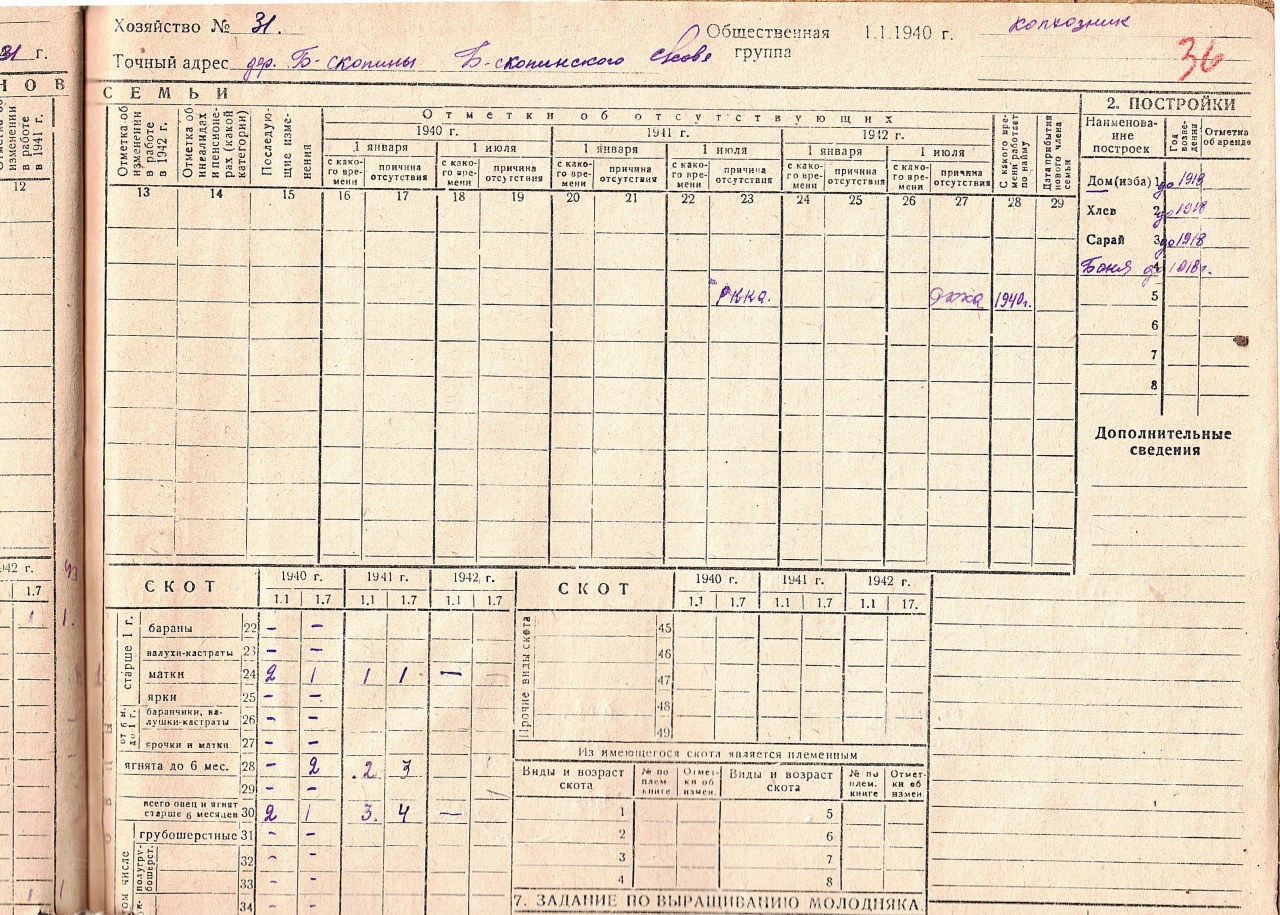 Хозяйство № 31. Общественная группа 1.1.1940 г. колхозник
36
Точный адрес дер. Б-скопины Б-скопинского
31 г.
НОВ
СЕМЬИ
изменении в работе в 1941 г.
12
Отметка об изменении в работе в 1942 г.
Отметка об инвалидах и пенсионерах (какой категории)
Последующие изменения
Отметки об отсутствующих
1940 г. 1941 г. 1942 г.
1 января 1 июля 1 января 1 июля 1 января 1 июля
с какого времени причина отсутствия с какого времени причина отсутствия с какого времени причина отсутствия с какого времени причина отсутствия с какого времени причина отсутствия с какого времени причина отсутствия
С какого времени работает по найму
Дата прибытия нового члена семьи
13 14 15 16 17 18 19 20 21 22 23 24 25 26 27 28 29
РККА. 1940г.
2. ПОСТРОЙКИ
Наименование построек Год возведения Отметка об аренде
Дом (изба) 1 до 1918
Хлев 2 до 1918
Сарай 3 до 1918
Баня 4 до 1918г.
5
6
7
8
Дополнительные сведения
942 г.
1.7
СКОТ 1940 г. 1941 г. 1942 г.
1.1 1.7 1.1 1.7 1.1 1.7
старше 1 г.
бараны 22 - -
валухи-кастраты 23 - -
матки 24 2 1 1 1 -
ярки 25 - -
от 6 м. до 1 г.
баранчики, валушки-кастраты 26 - -
ярочки и матки 27 - -
ягнята до 6 мес. 28 - 2 2 3
29 - -
всего овец и ягнят старше 6 месяцев 30 2 1 3 4 -
том числе
грубошерстные 31 - -
полугрубошерст.
32 - -
33 - -
34 - -
СКОТ 1940 г. 1941 г. 1942 г.
1.1 1.7 1.1 1.7 1.1 17.
Прочие виды скота
45
46
47
48
49
Из имеющегося скота является племенным
Виды и возраст скота № по плем. книге Отметки об измен. Виды и возраст скота № по плем. книге Отметки об измен.
1 5
2 6
3 7
4 8
7. ЗАДАНИЕ ПО ВЫРАЩИВАНИЮ МОЛОДНЯКА.